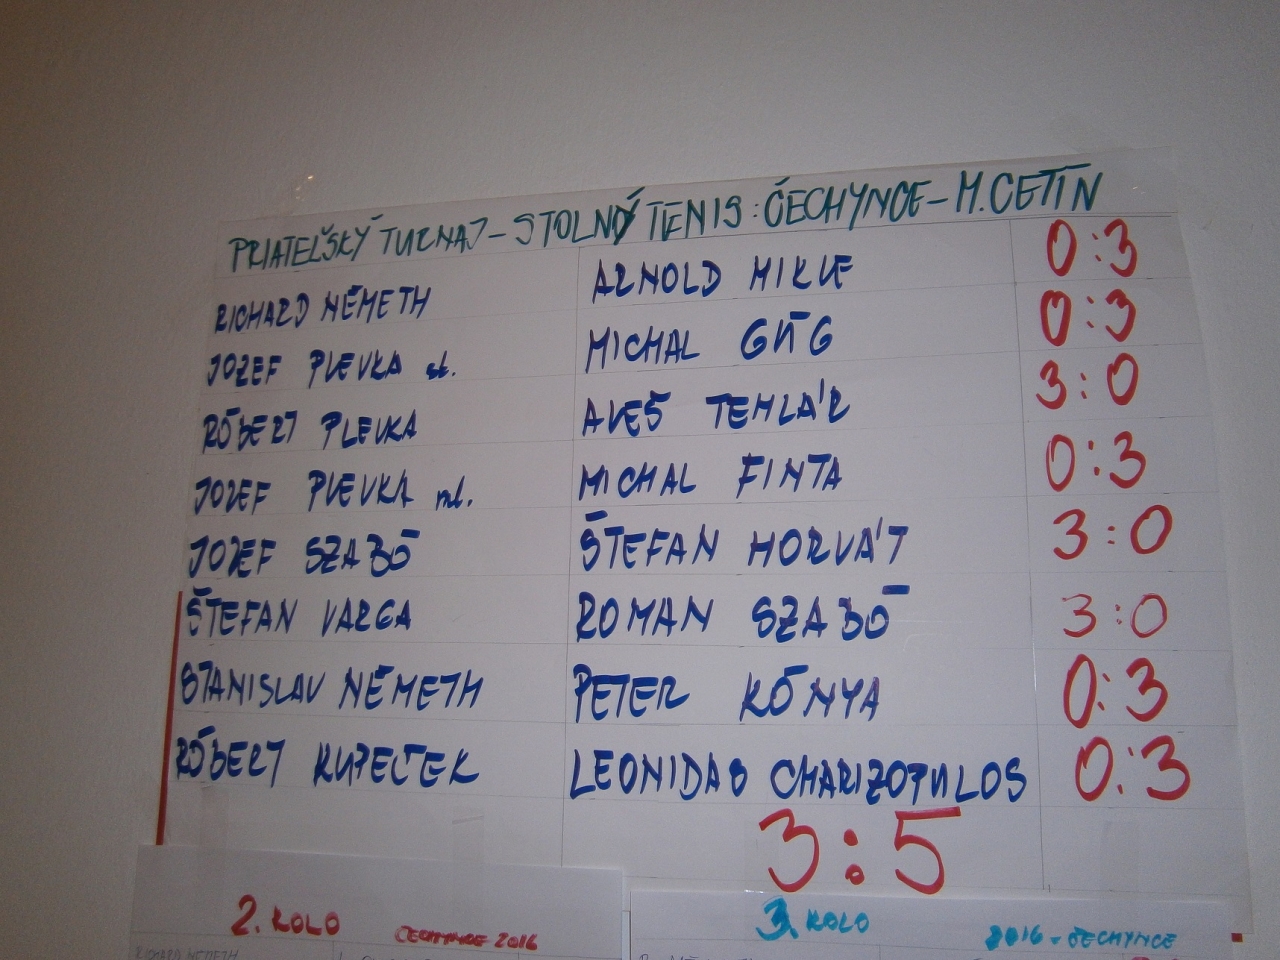 PRIATEĽSKÝ TURNAJ - STOLNÝ TENIS: ČECHYNCE - M. CETÍN
RICHARD NÉMETH ARNOLD MIKLE 0:3
JOZEF PLEVKA st. MICHAL GÚG 0:3
RÓBERT PLEVKA ALEŠ TEHLÁR 3:0
JOZEF PLEVKA ml. MICHAL FINTA 0:3
JOZEF SZABÓ ŠTEFAN HORVÁT 3:0
ŠTEFAN VARGA ROMAN SZABÓ 3:0
STANISLAV NÉMETH PETER KÓNYA 0:3
RÓBERT KUPEČEK LEONIDAS CHARIZOPULOS 0:3
3:5
2. KOLO ČECHYNCE 2016
3. KOLO 2016 - ČECHYNCE
RICHARD NÉMETH